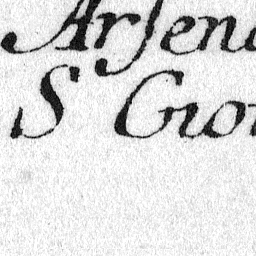 Arſena
S Gior